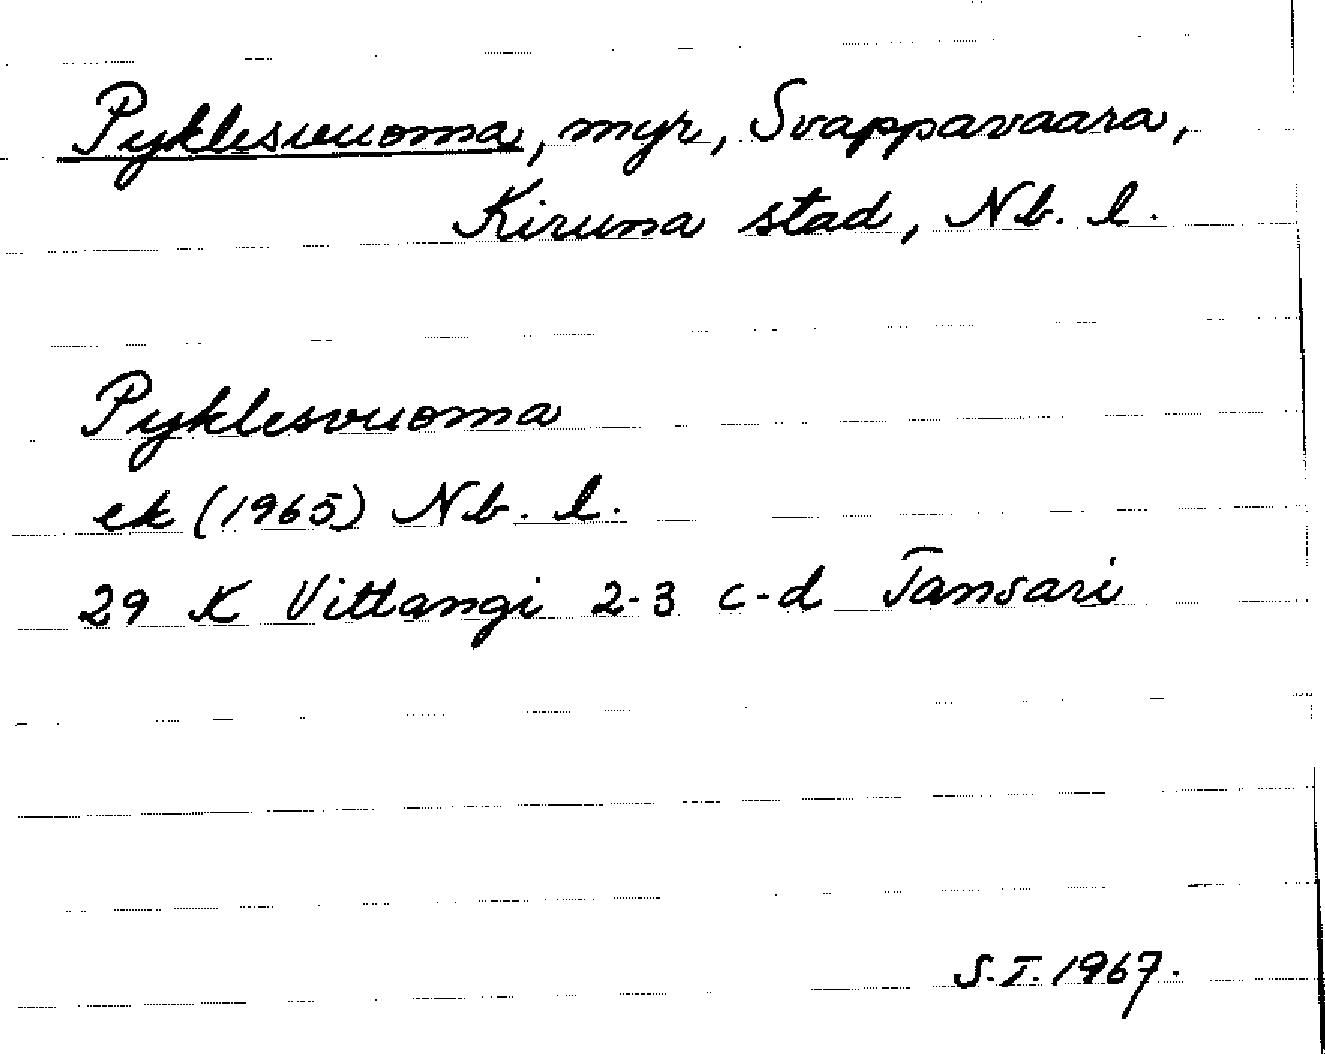 Pyklesvuoma, myr, Svappavaara,
Kiruna stad, Nb. l.
Pyklesvuoma
ek (1965) Nb. l.
29 K Vittangi 2-3 c-d Tansari
S.T. 1967.